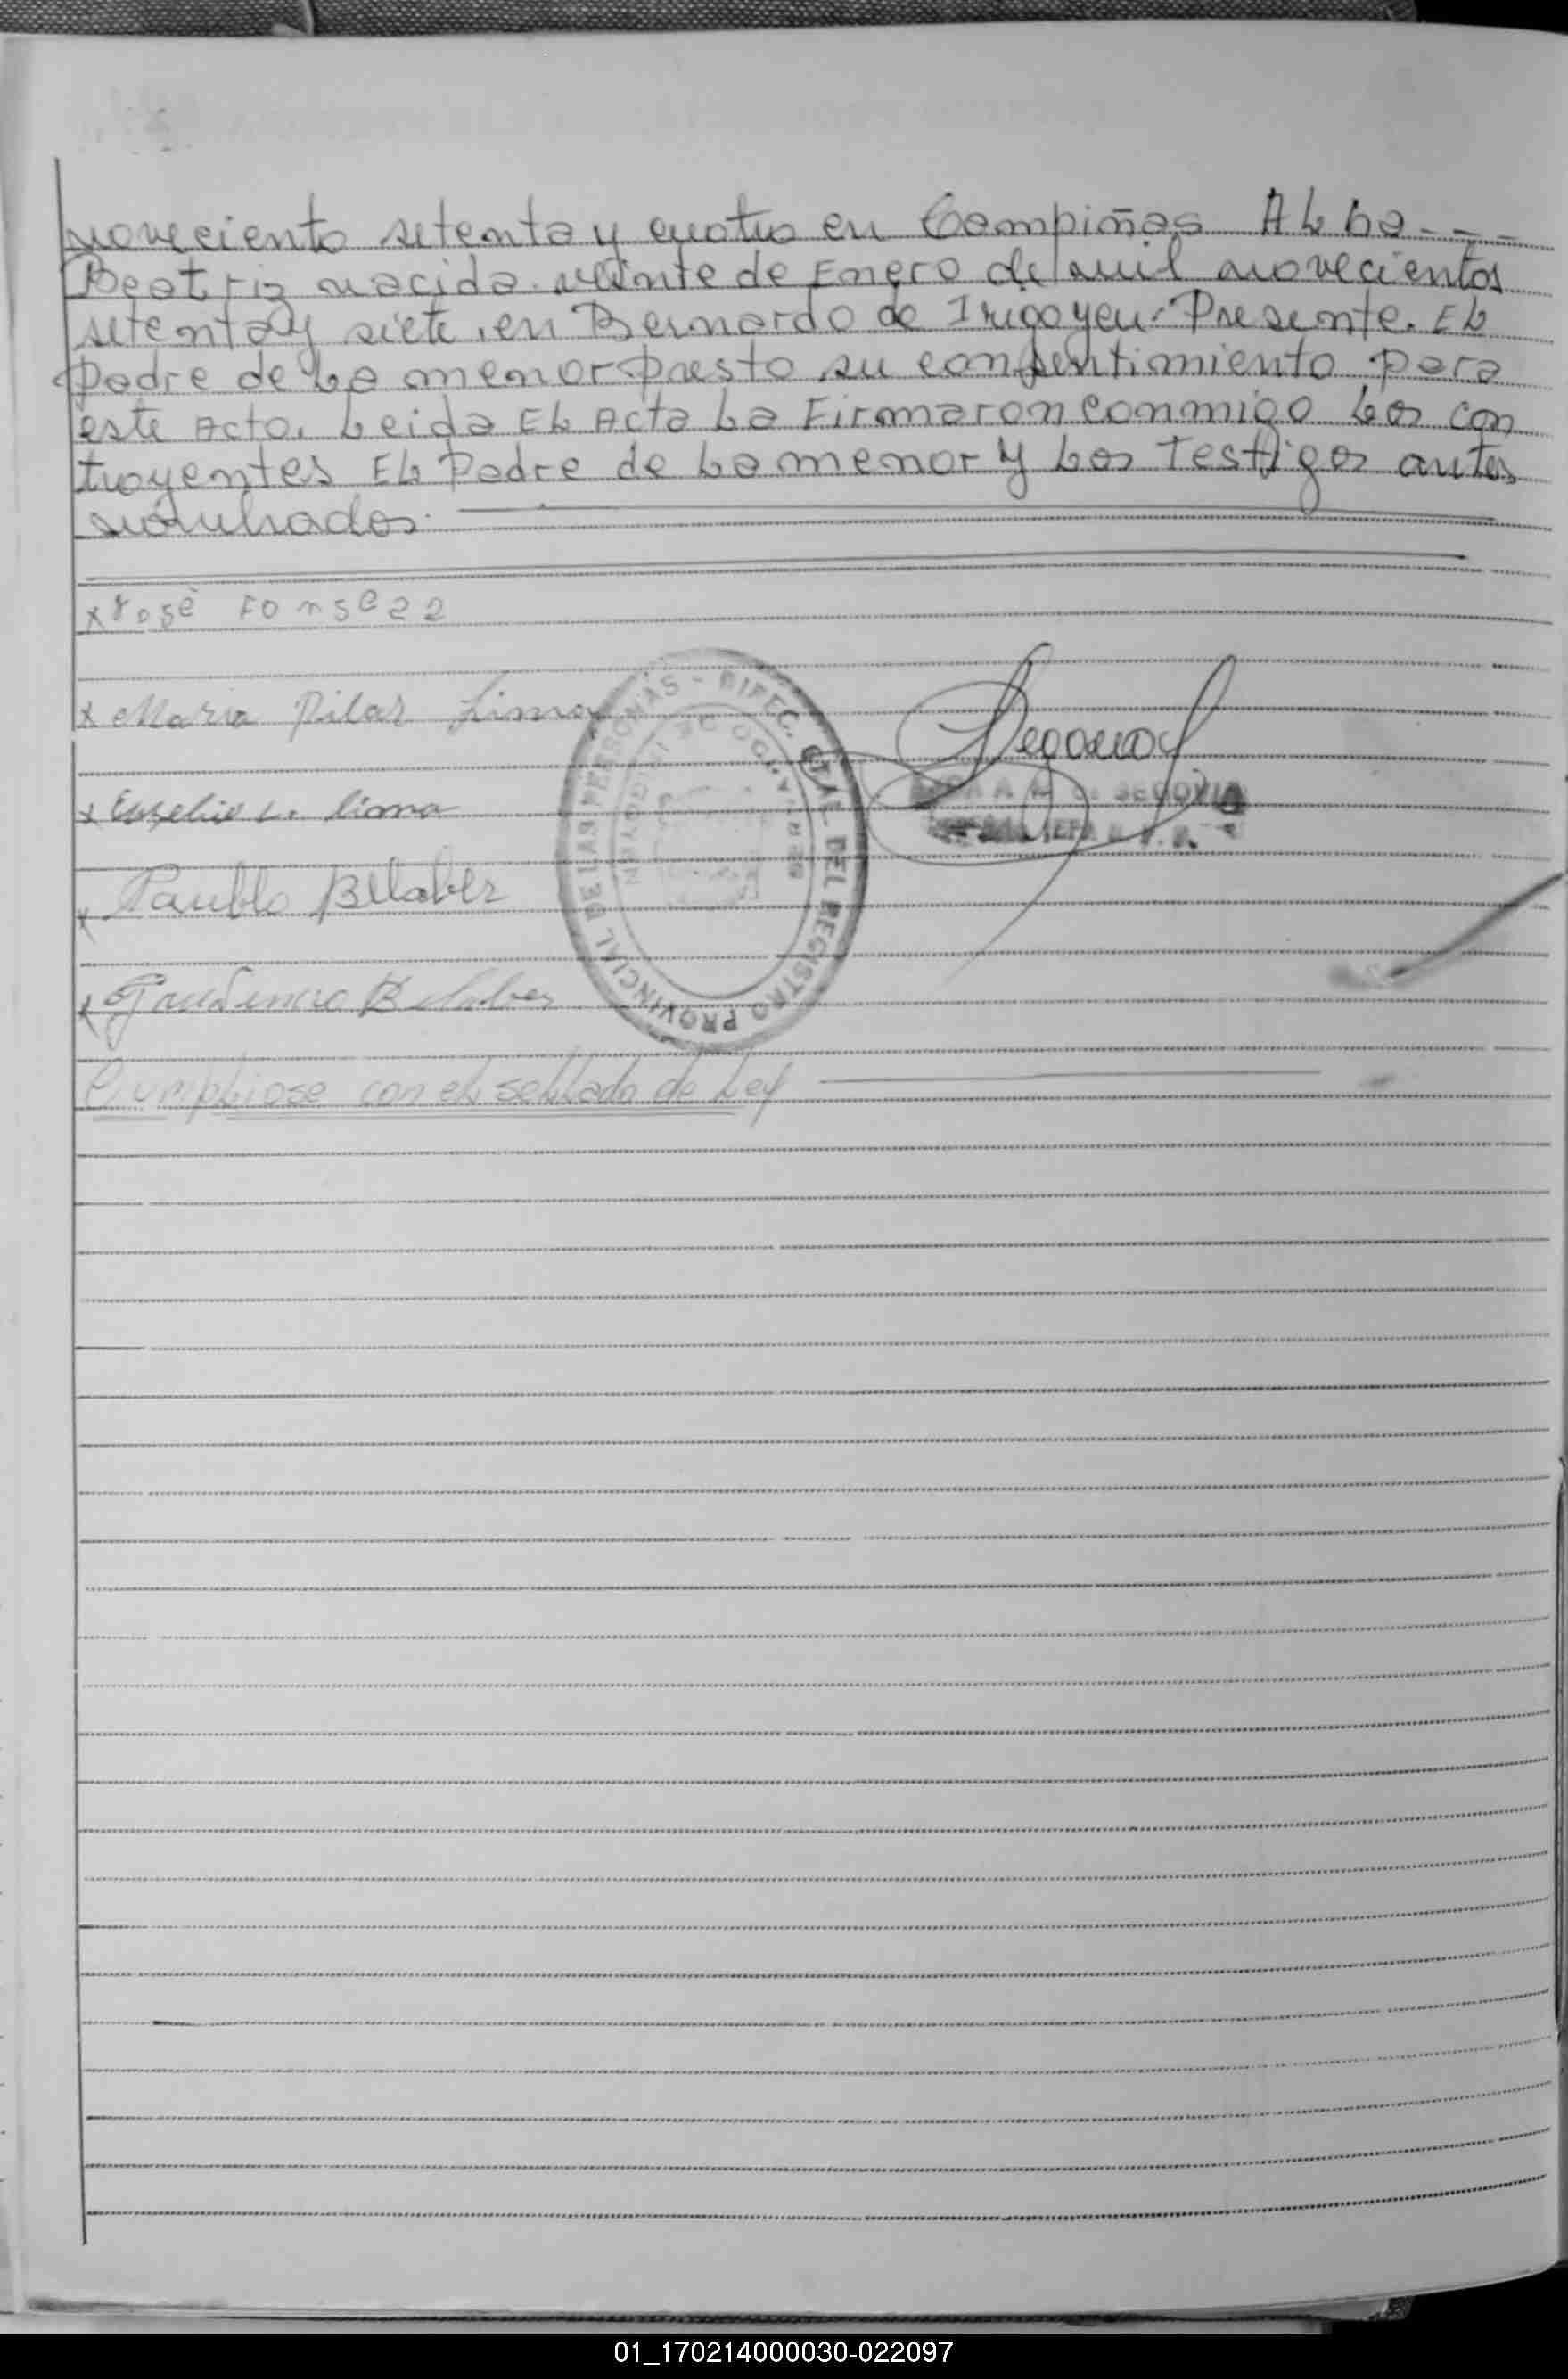 noveciento setenta y cuatro en Campiñas Alba - - -
Beatriz nacida veinte de Enero de mil novecientos
setenta y siete, en Bernardo de Irigoyen. Presente. El
Padre de la menor presto su consentimiento para
este Acto. Leida El Acta La Firmaron conmmigo Los con
trayentes El Padre de La menor y Los Testigos antes
nombrados.
x José Fonseca
x Maria Pilar Lima
x L. Lima
x Paublo
x
Cumpliose con el sellado de Ley
DIREC. GRAL. DEL REGISTRO PROVINCIAL DE LAS PERSONAS -
DE IRIGOYEN
SEGOVIA
01_170214000030-022097